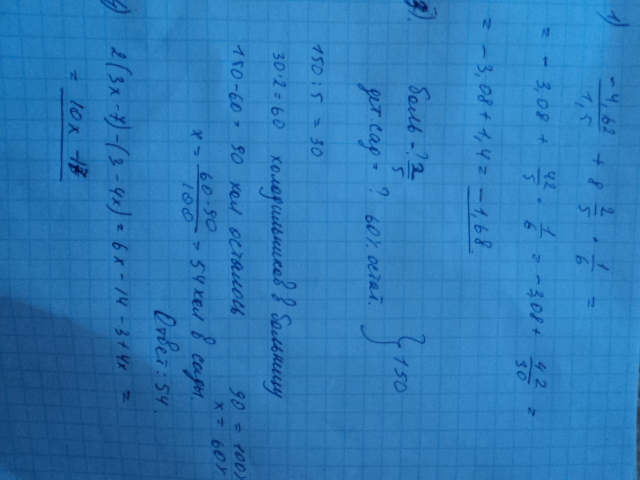 1) -4,62/1,5 + 8 2/5 · 1/6 =
= -3,08 + 42/5 · 1/6 = -3,08 + 42/30 =
= -3,08 + 1,4 = -1,68
боль = ? 2/5
дет сад = ? 60% остат. } 150
150 : 5 = 30
30·2 = 60 холодильников в больницу
150-60 = 90 хол осталось
90 = 100%
x = 60%
x = 60·90/100 = 54 хол в сады.
Ответ: 54.
2(3x-7)-(3-4x) = 6x-14-3+4x =
= 10x -17